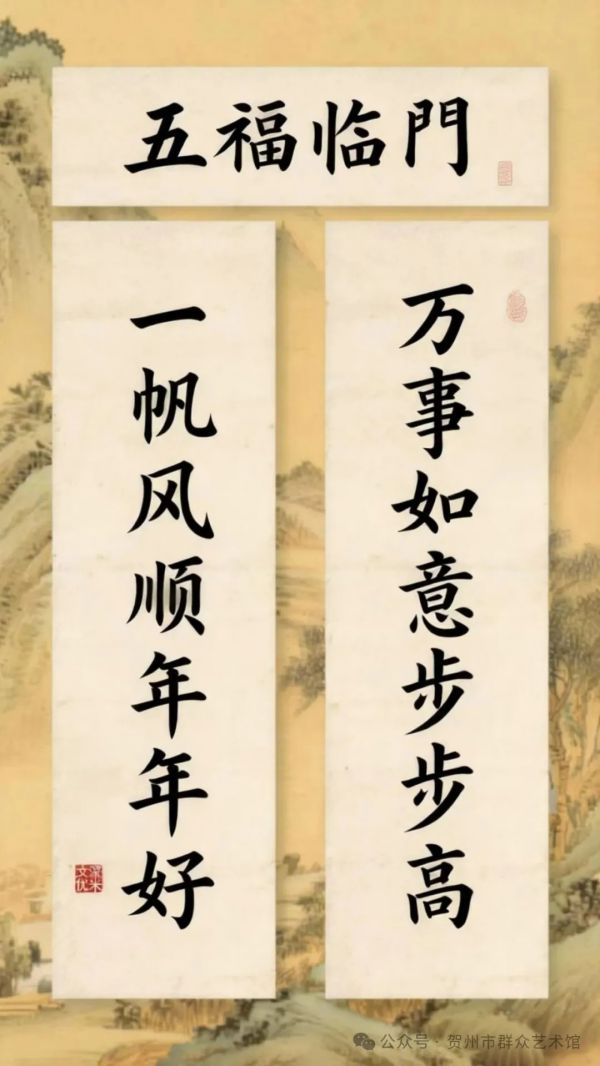 五福临門
万事如意步步高
一帆风顺年年好
公众号·贺州市群众艺术馆